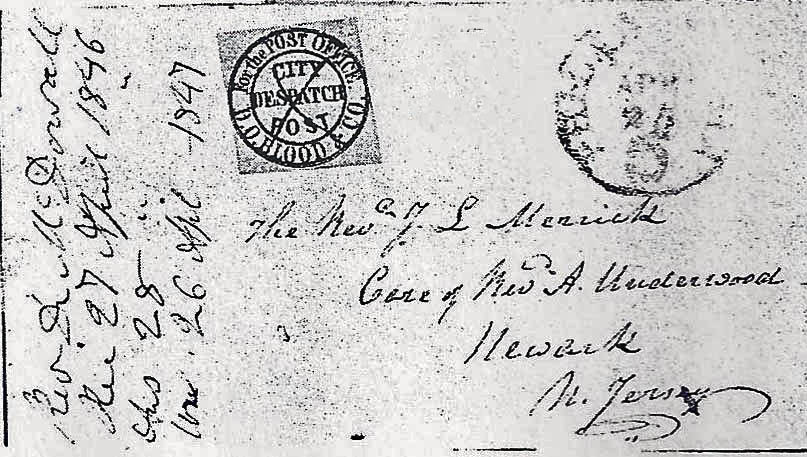 Rev Dr McDowell
27 April 1846
28
26 Apl 1847
For the POST OFFICE.
CITY
DESPATCH
POST
D.O. BLOOD & CO.
The Revd J. L Merrick
Care of Revd A. Underwood
Newark
N. Jersey